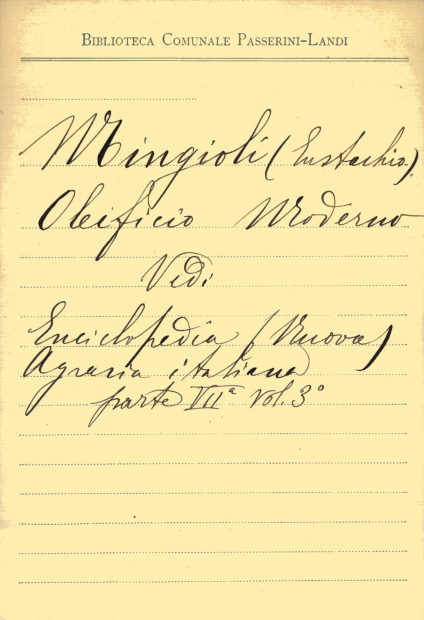 BIBLIOTECA COMUNALE PASSERINI-LANDI
Mingioli (Eustachio).
Oleificio Moderno
Vedi
Enciclopedia (Nuova)
Agraria italiana
parte VIIª vol. 3°